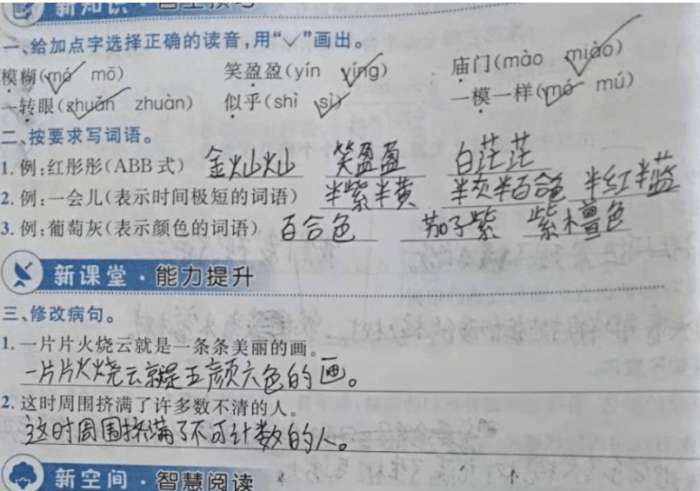 新知识·自主预习
一、给加点字选择正确的读音,用“✓”画出。
模糊(mó mō) 笑盈盈(yín yíng) 庙门(mào miào)
一转眼(zhuǎn zhuàn) 似乎(shì sì) 一模一样(mó mú)
二、按要求写词语。
1. 例:红彤彤(ABB式) 金灿灿 笑盈盈 白茫茫
2. 例:一会儿(表示时间极短的词语) 半紫半黄 半灰半百合色 半红半蓝
3. 例:葡萄灰(表示颜色的词语) 百合色 茄子紫 紫檀色
新课堂·能力提升
三、修改病句。
1. 一片片火烧云就是一条条美丽的画。
一片片火烧云就是五颜六色的画。
2. 这时周围挤满了许多数不清的人。
这时周围挤满了不可计数的人。
新空间·智慧阅读